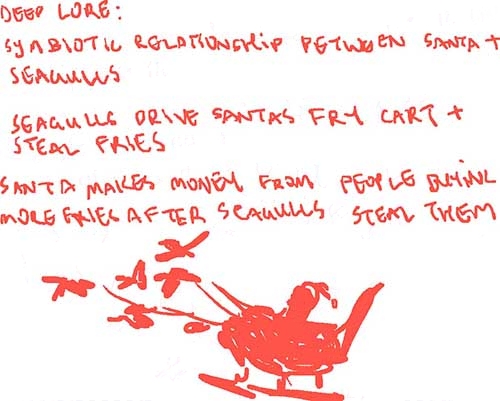 DEEP LORE:
SYMBIOTIC RELATIONSHIP BETWEEN SANTA +
SEAGULLS
SEAGULLS DRIVE SANTAS FRY CART +
STEAL FRIES
SANTA MAKES MONEY FROM PEOPLE BUYING
MORE FRIES AFTER SEAGULLS STEAL THEM